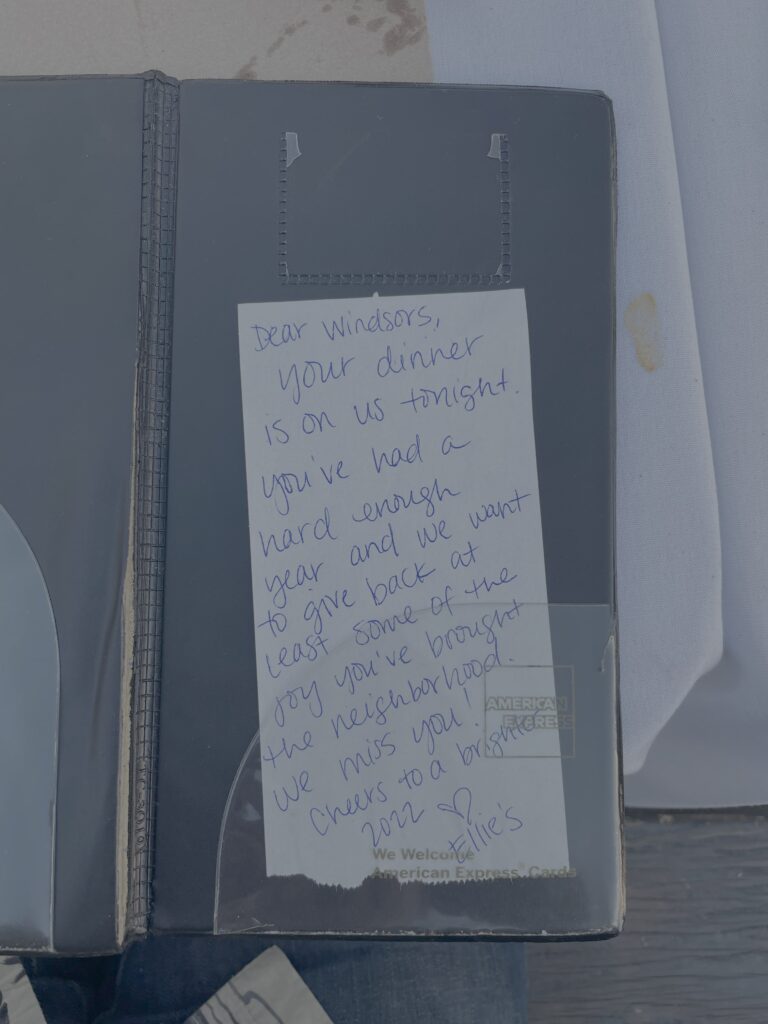 Dear Windsors,
Your dinner
is on us tonight.
you've had a
hard enough
year and we want
to give back at
least some of the
joy you've brought
the neighborhood.
We miss you!
Cheers to a brighter
2022 ♡
Ellie's
AMERICAN
EXPRESS
We Welcome
American Express® Cards